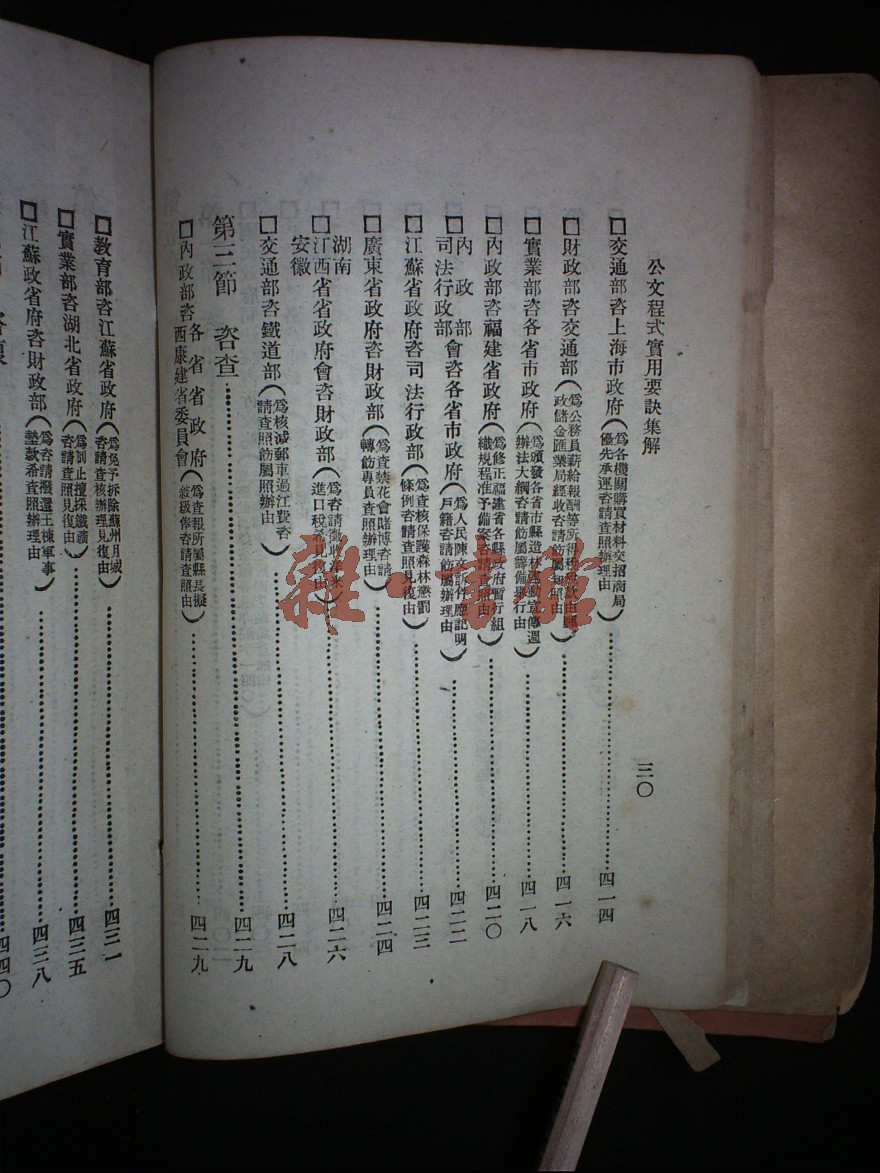 公文程式實用要訣集解
三〇
□交通部咨上海市政府（爲各機關購買材料交招商局優先承運咨請查照辦理由）……四一四
□財政部咨交通部（爲公務員薪給報酬等所得郵政儲金匯業局經收咨請飭屬知照由）……四一六
□實業部咨各省市政府（爲頒發各省市縣造林運動宣傳週辦法大綱咨請飭屬籌備舉行由）……四一八
□內政部咨福建省政府（爲修正福建省各縣政府暫行組織規程准予備案咨請查照由）……四二〇
□內政部司法行政部會咨各省市政府（爲人民陳文訴件應記明戶籍咨請飭屬辦理由）……四二二
□江蘇省政府咨司法行政部（爲查核保護森林懲罰條例咨請查照見復由）……四二三
□廣東省政府咨財政部（爲查禁花會賭博咨請轉飭專員查照辦理由）……四二四
湖南□江西安徽省省政府會咨財政部（爲咨請徵收洋米進口稅希見復由）……四二六
□交通部咨鐵道部（爲核減郵車過江費咨請查照飭屬照辦由）……四二八
第三節 咨查……四二九
□內政部咨各省省政府西康建省委員會（爲查報所屬縣長擬敘級俸咨請查照由）……四二九
□教育部咨江蘇省政府（爲免予拆除蘇州月城咨請查核辦理見復由）……四三一
□實業部咨湖北省政府（爲制止擅採鐵礦咨請查照見復由）……四三五
□江蘇政省府咨財政部（爲咨請撥還王棟軍事墊款希查照辦理由）……四三八
四四〇
雜·書館